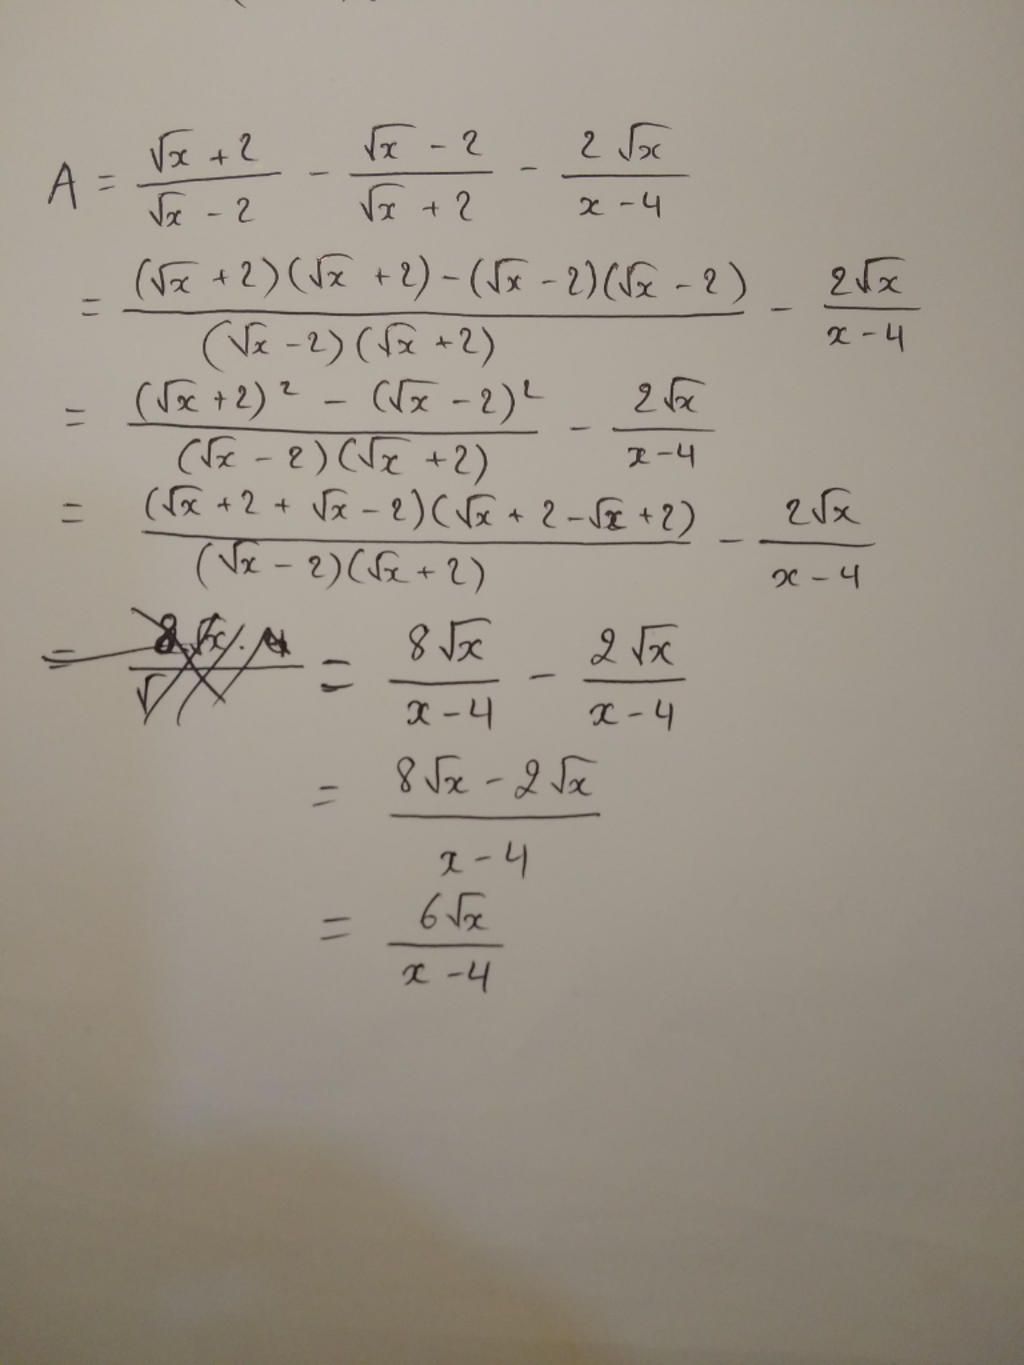 A = (√x + 2)/(√x - 2) - (√x - 2)/(√x + 2) - (2√x)/(x - 4)
= ((√x + 2)(√x + 2) - (√x - 2)(√x - 2))/((√x - 2)(√x + 2)) - (2√x)/(x - 4)
= ((√x + 2)² - (√x - 2)²)/((√x - 2)(√x + 2)) - (2√x)/(x - 4)
= ((√x + 2 + √x - 2)(√x + 2 - √x + 2))/((√x - 2)(√x + 2)) - (2√x)/(x - 4)
= (8√x)/(x - 4) - (2√x)/(x - 4)
= (8√x - 2√x)/(x - 4)
= (6√x)/(x - 4)